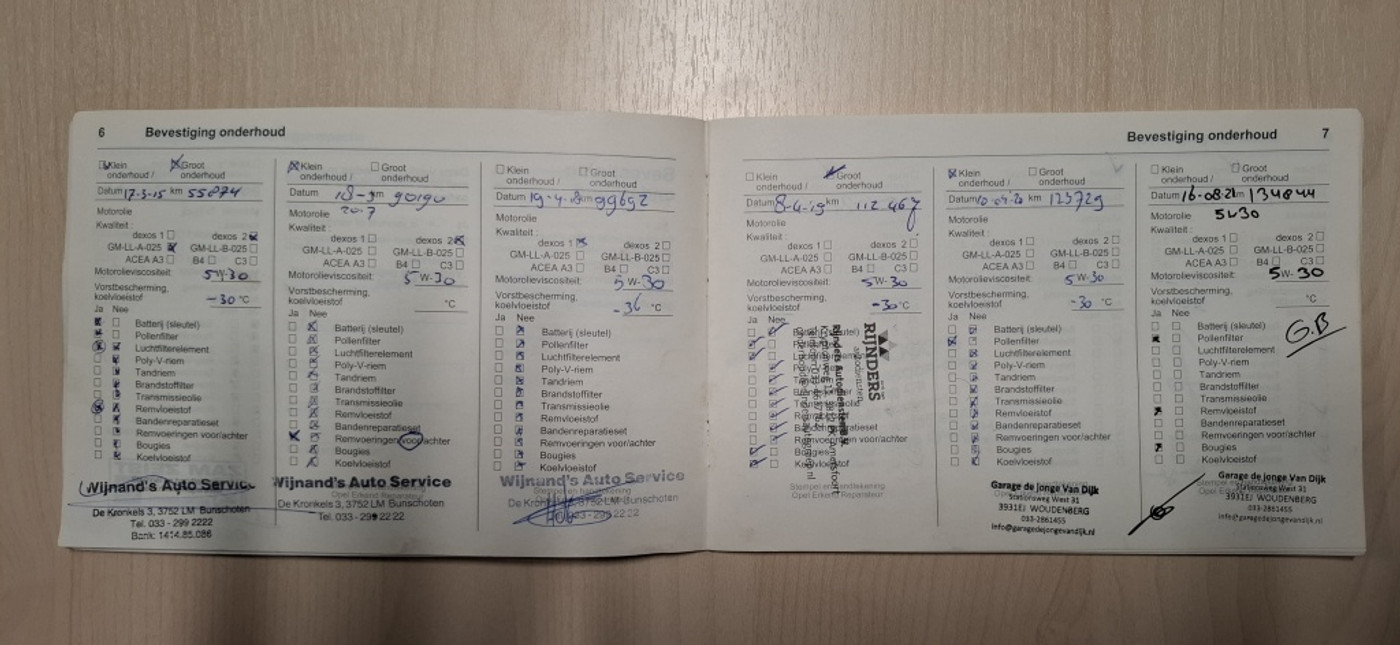 6 Bevestiging onderhoud
Klein onderhoud / Groot onderhoud
Datum 17-3-15 km 55874
Motorolie
Kwaliteit :
dexos 1 dexos 2
GM-LL-A-025 GM-LL-B-025
ACEA A3 B4 C3
Motorolieviscositeit: 5W-30
Vorstbescherming, koelvloeistof -30 °C
Ja Nee
Batterij (sleutel)
Pollenfilter
Luchtfilterelement
Poly-V-riem
Tandriem
Brandstoffilter
Transmissieolie
Remvloeistof
Bandenreparatieset
Remvoeringen voor/achter
Bougies
Koelvloeistof
Wijnand's Auto Service
De Kronkels 3, 3752 LM Bunschoten
Tel. 033 - 299 2222
Bank: 1414.85.086
Klein onderhoud / Groot onderhoud
Datum km 90190
Motorolie 2017
Kwaliteit :
dexos 1 dexos 2
GM-LL-A-025 GM-LL-B-025
ACEA A3 B4 C3
Motorolieviscositeit: 5W-30
Vorstbescherming, koelvloeistof °C
Ja Nee
Batterij (sleutel)
Pollenfilter
Luchtfilterelement
Poly-V-riem
Tandriem
Brandstoffilter
Transmissieolie
Remvloeistof
Bandenreparatieset
Remvoeringen voor/achter
Bougies
Koelvloeistof
Wijnand's Auto Service
Opel Erkend Reparateur
De Kronkels 3, 3752 LM Bunschoten
Tel. 033 - 299 22 22
Klein onderhoud / Groot onderhoud
Datum 19-4-18 km 99692
Motorolie
Kwaliteit :
dexos 1 dexos 2
GM-LL-A-025 GM-LL-B-025
ACEA A3 B4 C3
Motorolieviscositeit: 5W-30
Vorstbescherming, koelvloeistof -36 °C
Ja Nee
Batterij (sleutel)
Pollenfilter
Luchtfilterelement
Poly-V-riem
Tandriem
Brandstoffilter
Transmissieolie
Remvloeistof
Bandenreparatieset
Remvoeringen voor/achter
Bougies
Koelvloeistof
Wijnand's Auto Service
De Kronkels 3, 3752 LM Bunschoten
033 - 299 22 22
Bevestiging onderhoud 7
Klein onderhoud / Groot onderhoud
Datum 8-4-19 km 112 467
Motorolie
Kwaliteit :
dexos 1 dexos 2
GM-LL-A-025 GM-LL-B-025
ACEA A3 B4 C3
Motorolieviscositeit: 5W-30
Vorstbescherming, koelvloeistof -30 °C
Ja Nee
RIJNDERS
autodiensten
Rijnders Autodiensten
Koelvloeistof
Stempel en handtekening
Opel Erkend Reparateur
Klein onderhoud / Groot onderhoud
Datum km 125729
Motorolie
Kwaliteit :
dexos 1 dexos 2
GM-LL-A-025 GM-LL-B-025
ACEA A3 B4 C3
Motorolieviscositeit: 5W-30
Vorstbescherming, koelvloeistof -30 °C
Ja Nee
Batterij (sleutel)
Pollenfilter
Luchtfilterelement
Poly-V-riem
Tandriem
Brandstoffilter
Transmissieolie
Remvloeistof
Bandenreparatieset
Remvoeringen voor/achter
Bougies
Koelvloeistof
Garage de Jonge Van Dijk
Stationsweg West 31
3931EJ WOUDENBERG
033-2861455
info@garagedejongevandijk.nl
Klein onderhoud / Groot onderhoud
Datum 16-08-21 km 134844
Motorolie 5W30
Kwaliteit :
dexos 1 dexos 2
GM-LL-A-025 GM-LL-B-025
ACEA A3 B4 C3
Motorolieviscositeit: 5W-30
Vorstbescherming, koelvloeistof °C
Ja Nee
Batterij (sleutel)
Pollenfilter
Luchtfilterelement
Poly-V-riem
Tandriem
Brandstoffilter
Transmissieolie
Remvloeistof
Bandenreparatieset
Remvoeringen voor/achter
Bougies
Koelvloeistof
G.B
Garage de Jonge Van Dijk
Stationsweg West 31
3931EJ WOUDENBERG
033-2861455
info@garagedejongevandijk.nl